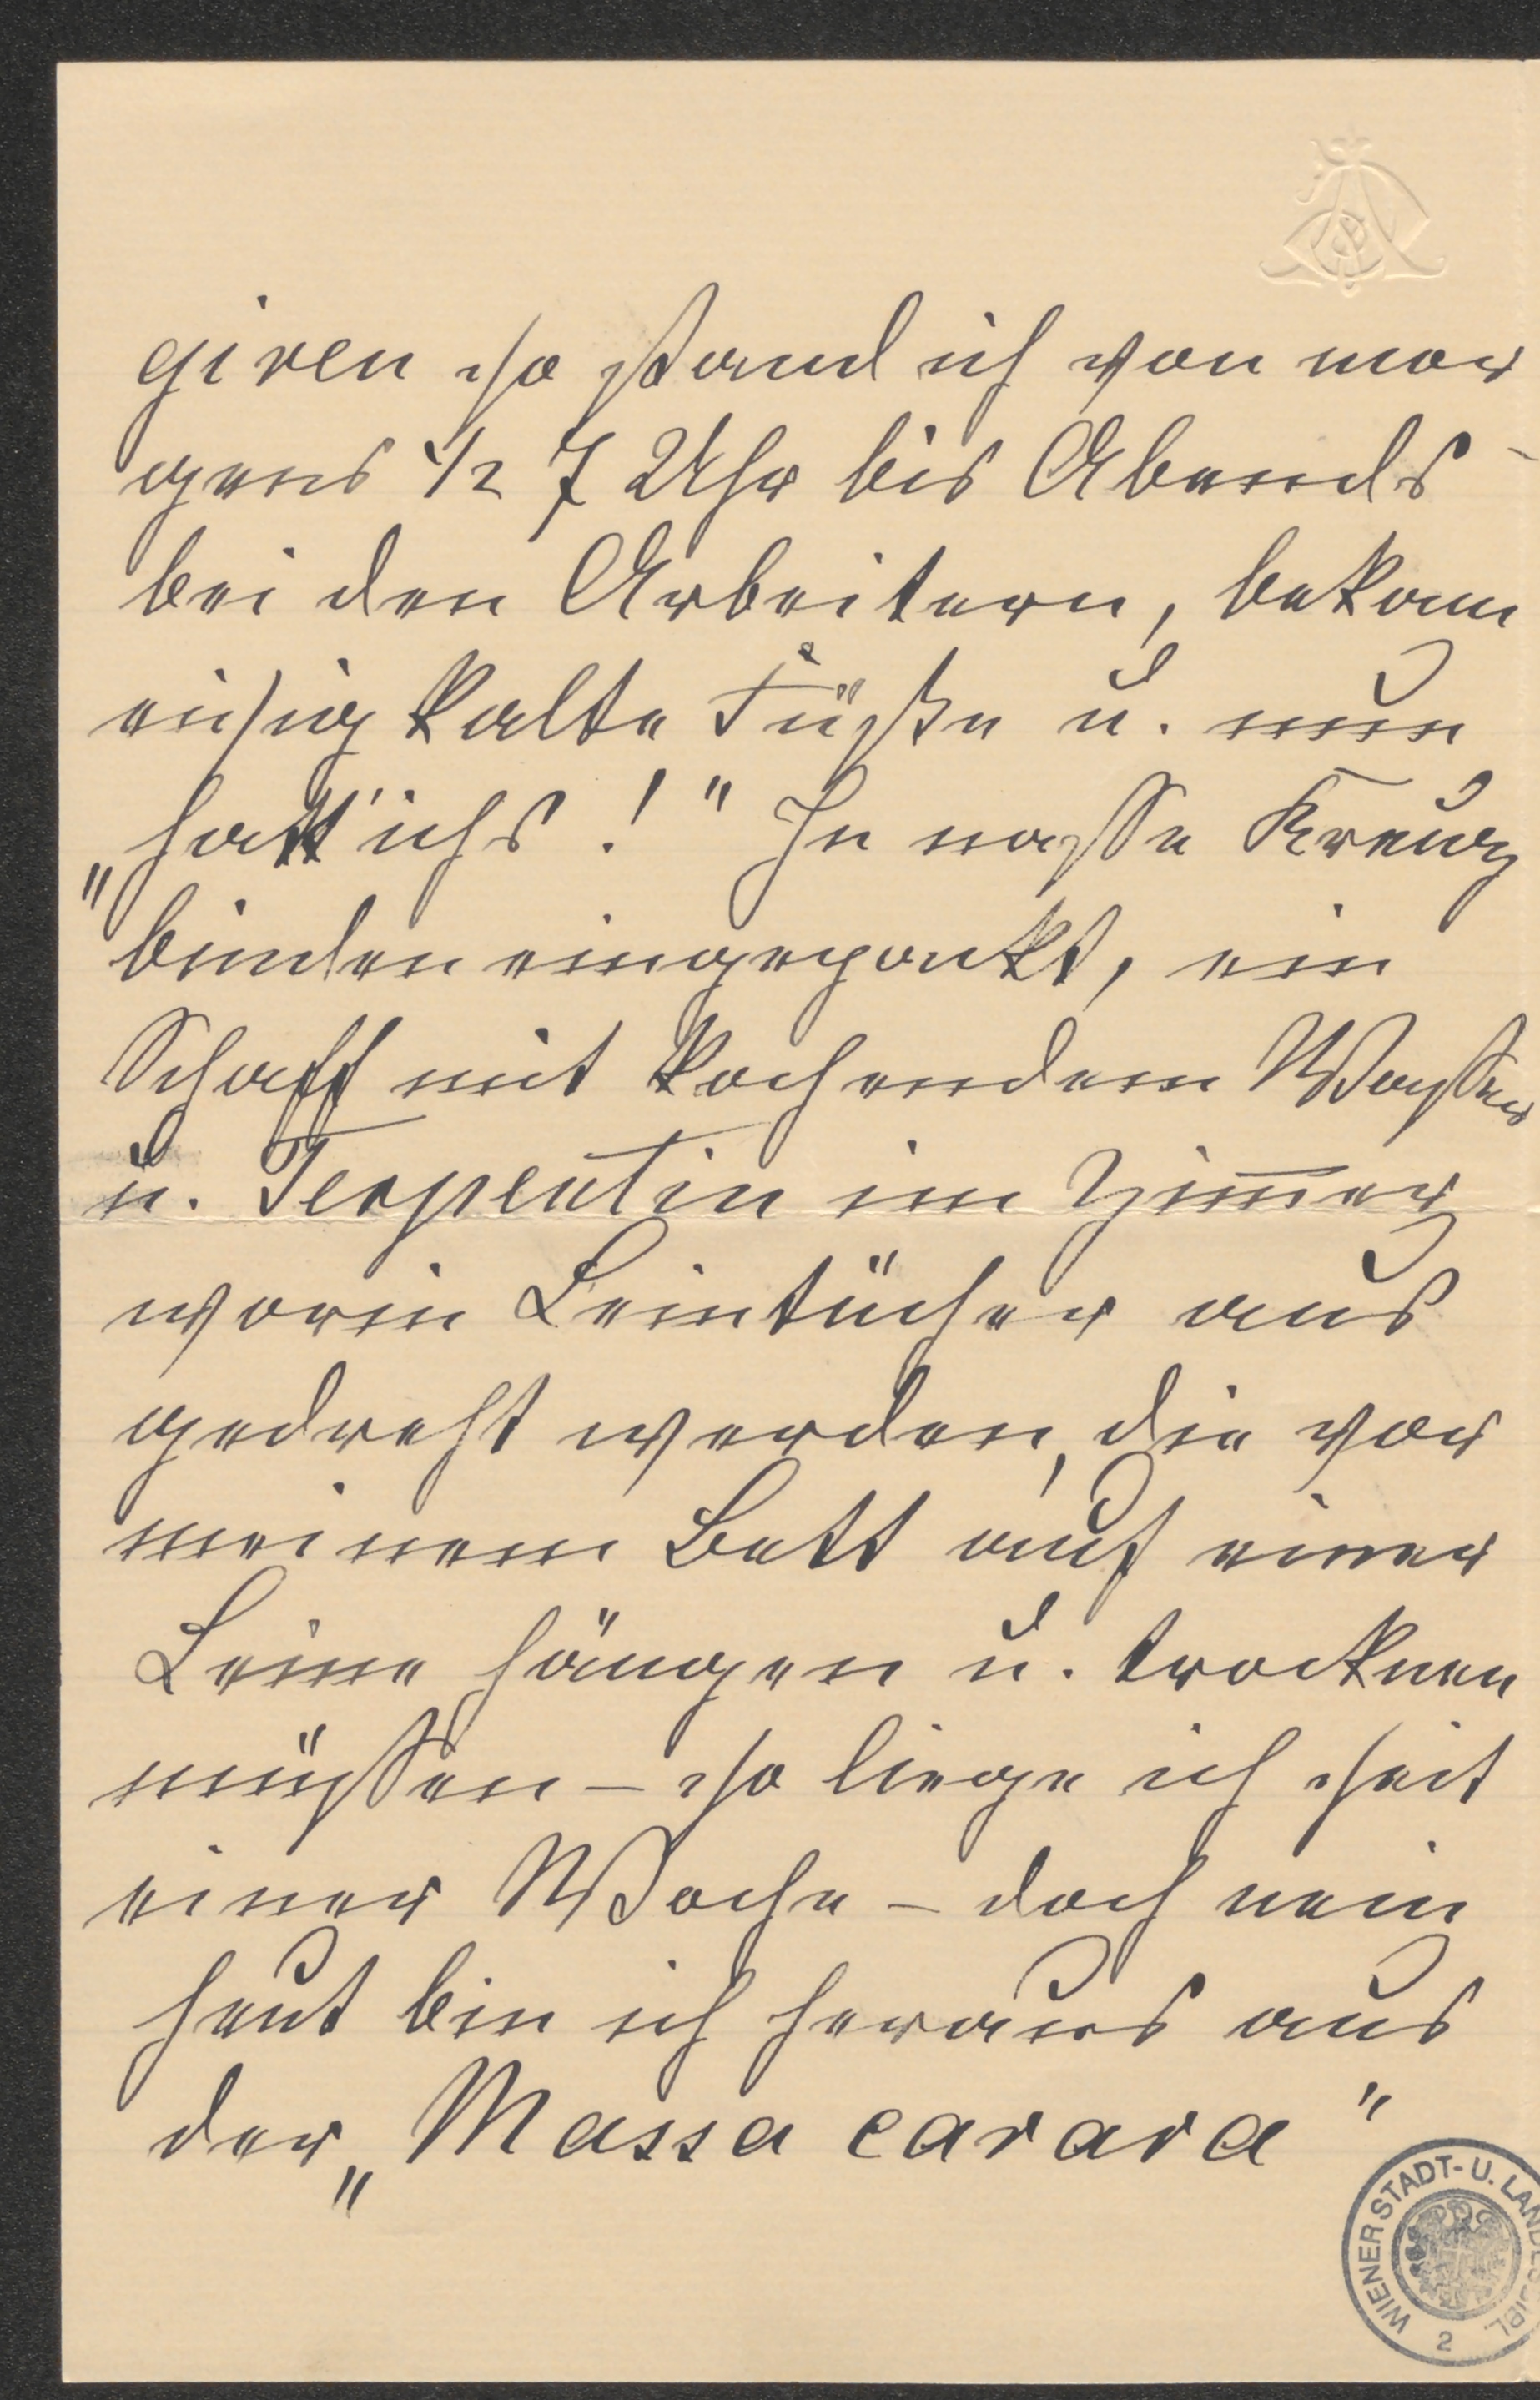 giren so stand ich von mor
gens 1/2 7 Uhr bis Abends -
bei den Arbeitern, bekam
eisig kalte Füße u. nun
„hatt' ichs!" In nasse Kreuz
binden eingepackt, ein
Schaff mit kochendem Wasser
u. Terpentin im Zim̅er
worin Leintücher aus
gedreht werden, die vor
meinem Bett auf einer
Leine hängen u. trocknen
müssen – so liege ich seit
einer Woche – doch nein
heut bin ich heraus aus
der „Massa carara"
WIENER STADT- U. LANDESBIBL.
2